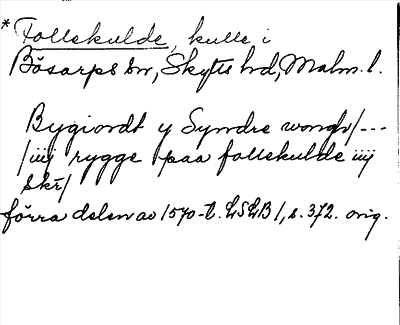 * Follekulde, kulle i
Bösarps sn, Skytts hd, Malm. l.
Bygiordt y Syndre wongh/---
/iiij rygge paa follekulde iiij
skr̄/
förra delen av 1570-t. LSLB 1, s. 372. orig.